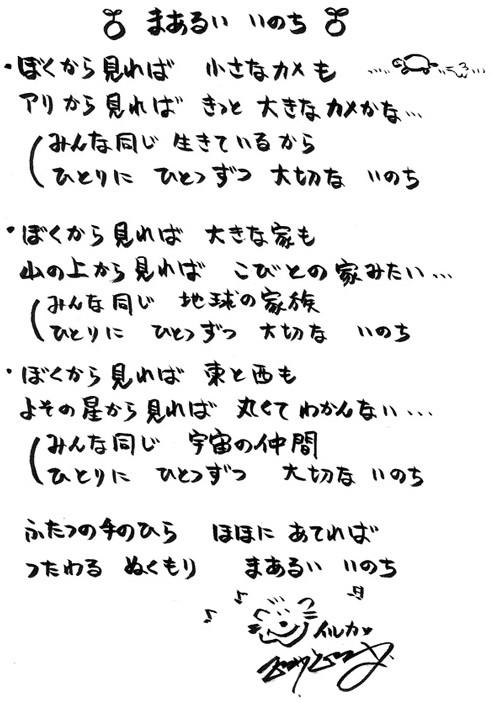 まあるい いのち
・ぼくから見れば 小さなカメも
アリから見れば きっと 大きなカメかな…
みんな同じ 生きているから
ひとりに ひとつずつ 大切な いのち
・ぼくから見れば 大きな家も
山の上から見れば こびとの家みたい…
みんな同じ 地球の家族
ひとりに ひとつずつ 大切な いのち
・ぼくから見れば 東と西も
よその星から見れば 丸くて わかんない…
みんな同じ 宇宙の仲間
ひとりに ひとつずつ 大切な いのち
ふたつの手のひら ほほに あてれば
つたわる ぬくもり まあるい いのち
イルカ